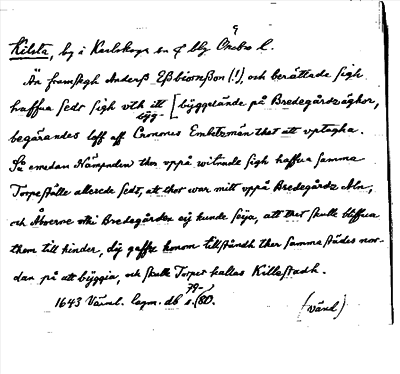 Kilsta, by i Karlskoga sn o lbg Örebro l.
Än framstegh Anderß Eßbiörnßon (!), och berättade sigh
haffua sedt sigh vth itt [byggelände på Bredegårdz äghor,
bÿg-
begärandes loff aff Cronones Embetzmän thet att vptagha.
Så emedan Nämpnden ther vppå witnade sigh haffua samma
Torpeställe allerede sedt, att thor war mitt vppå Bredegårdz Aln,
och Åboerne vthi Bredegården eij kunde seija, att thet skulle bliffua
them till hinder, dÿ gaffz honom tillståndh ther samma städes nor-
dan på att bÿggia, och skulle Torpet kallas Killestadh.
1643 Värml. lagm. db s. 79-80.
(vänd)